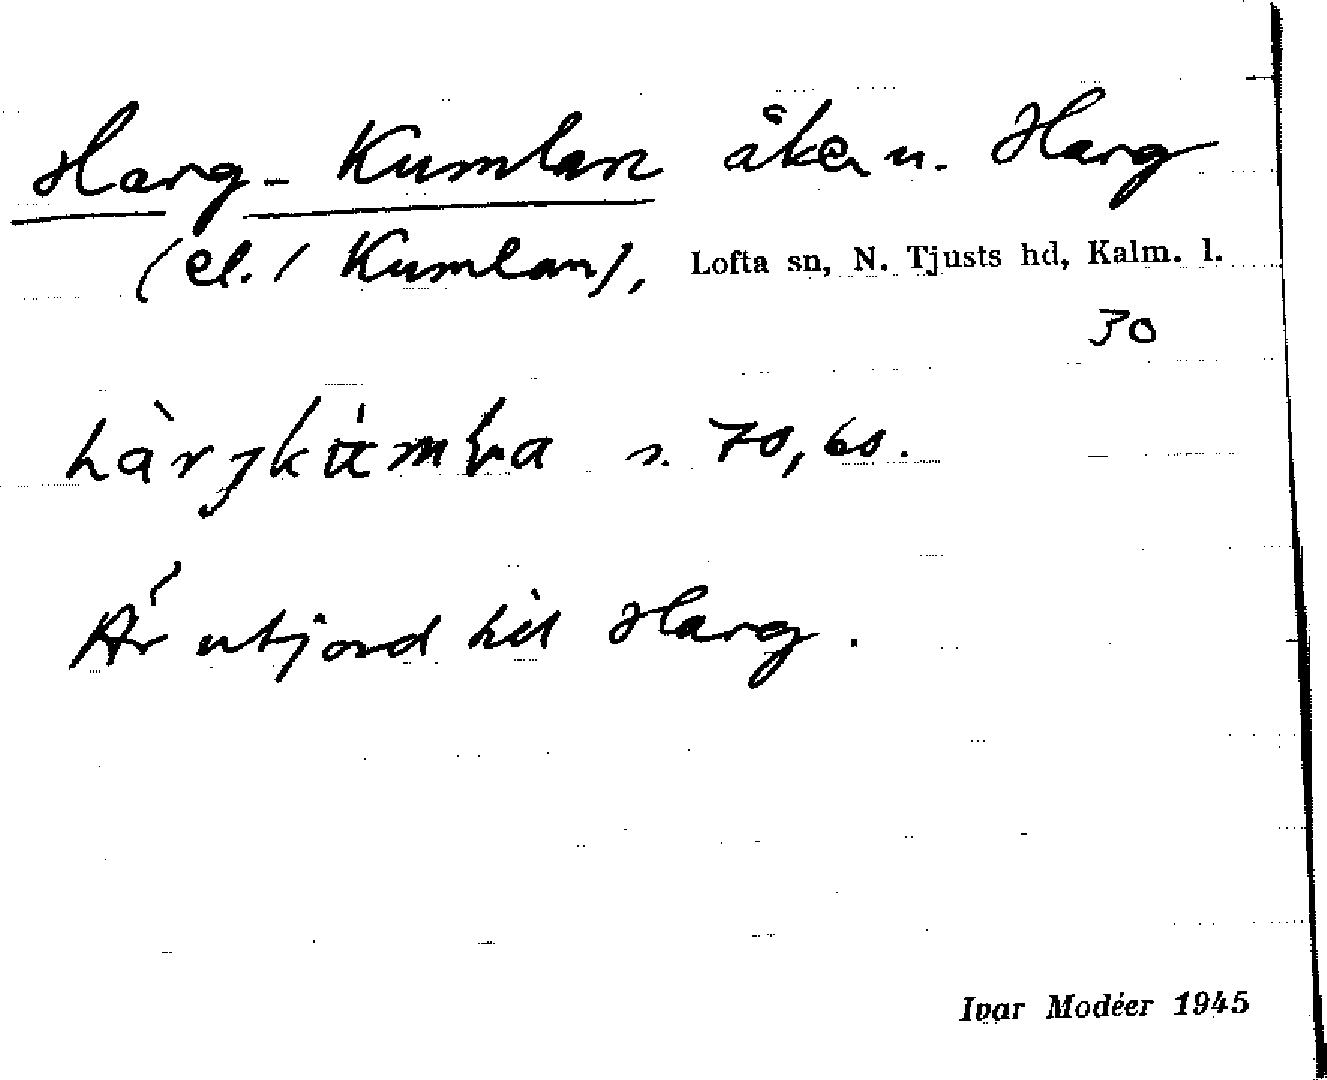 Harg-Kumlan åker u. Harg
(el. / Kumlan),
Lofta sn, N. Tjusts hd, Kalm. l.
30
s. 70, 60.
Är utjord till Harg.
Ivar Modéer 1945